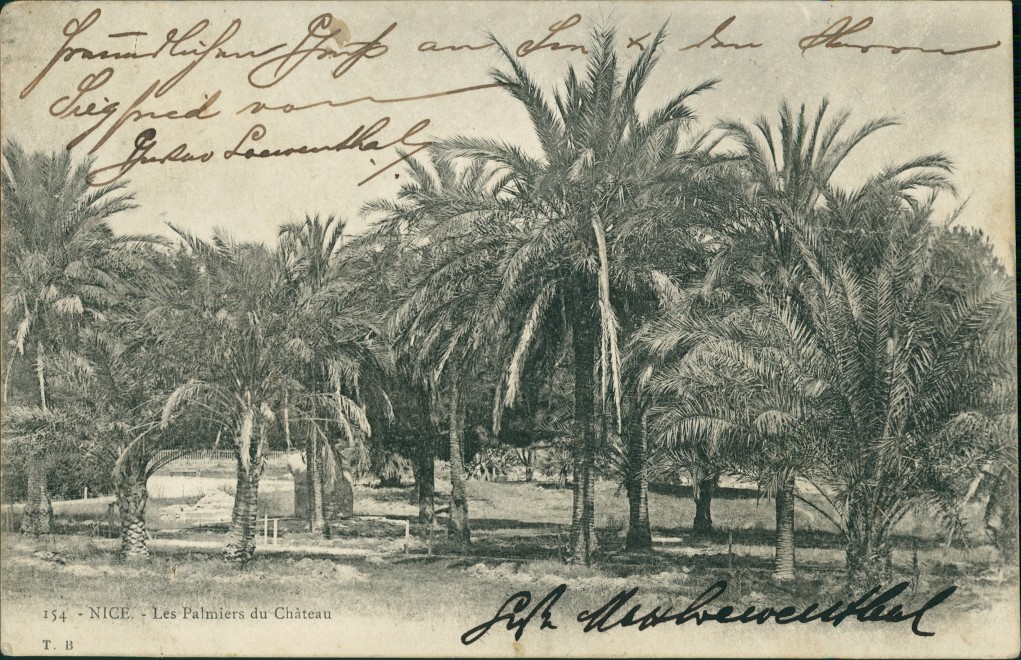 freundlichen Gruß an Sie & den Herrn
Siegfried von
Gustav Loewenthal
154 - NICE. - Les Palmiers du Château
T. B
Loewenthal